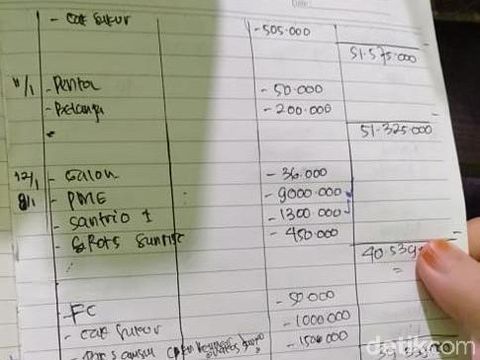 - cat sukur - 505.000
51.575.000
11/1 - Pentol - 50.000
- Belanja - 200.000
51.325.000
12/1 - Salon - 36.000
8/1 - PME - 9000.000
- santrio 1 - 1300.000
- Sunrise - 450.000
40.539
- FC - 50.000
- cat sukur - 1000.000
- 1500.000
detikcom